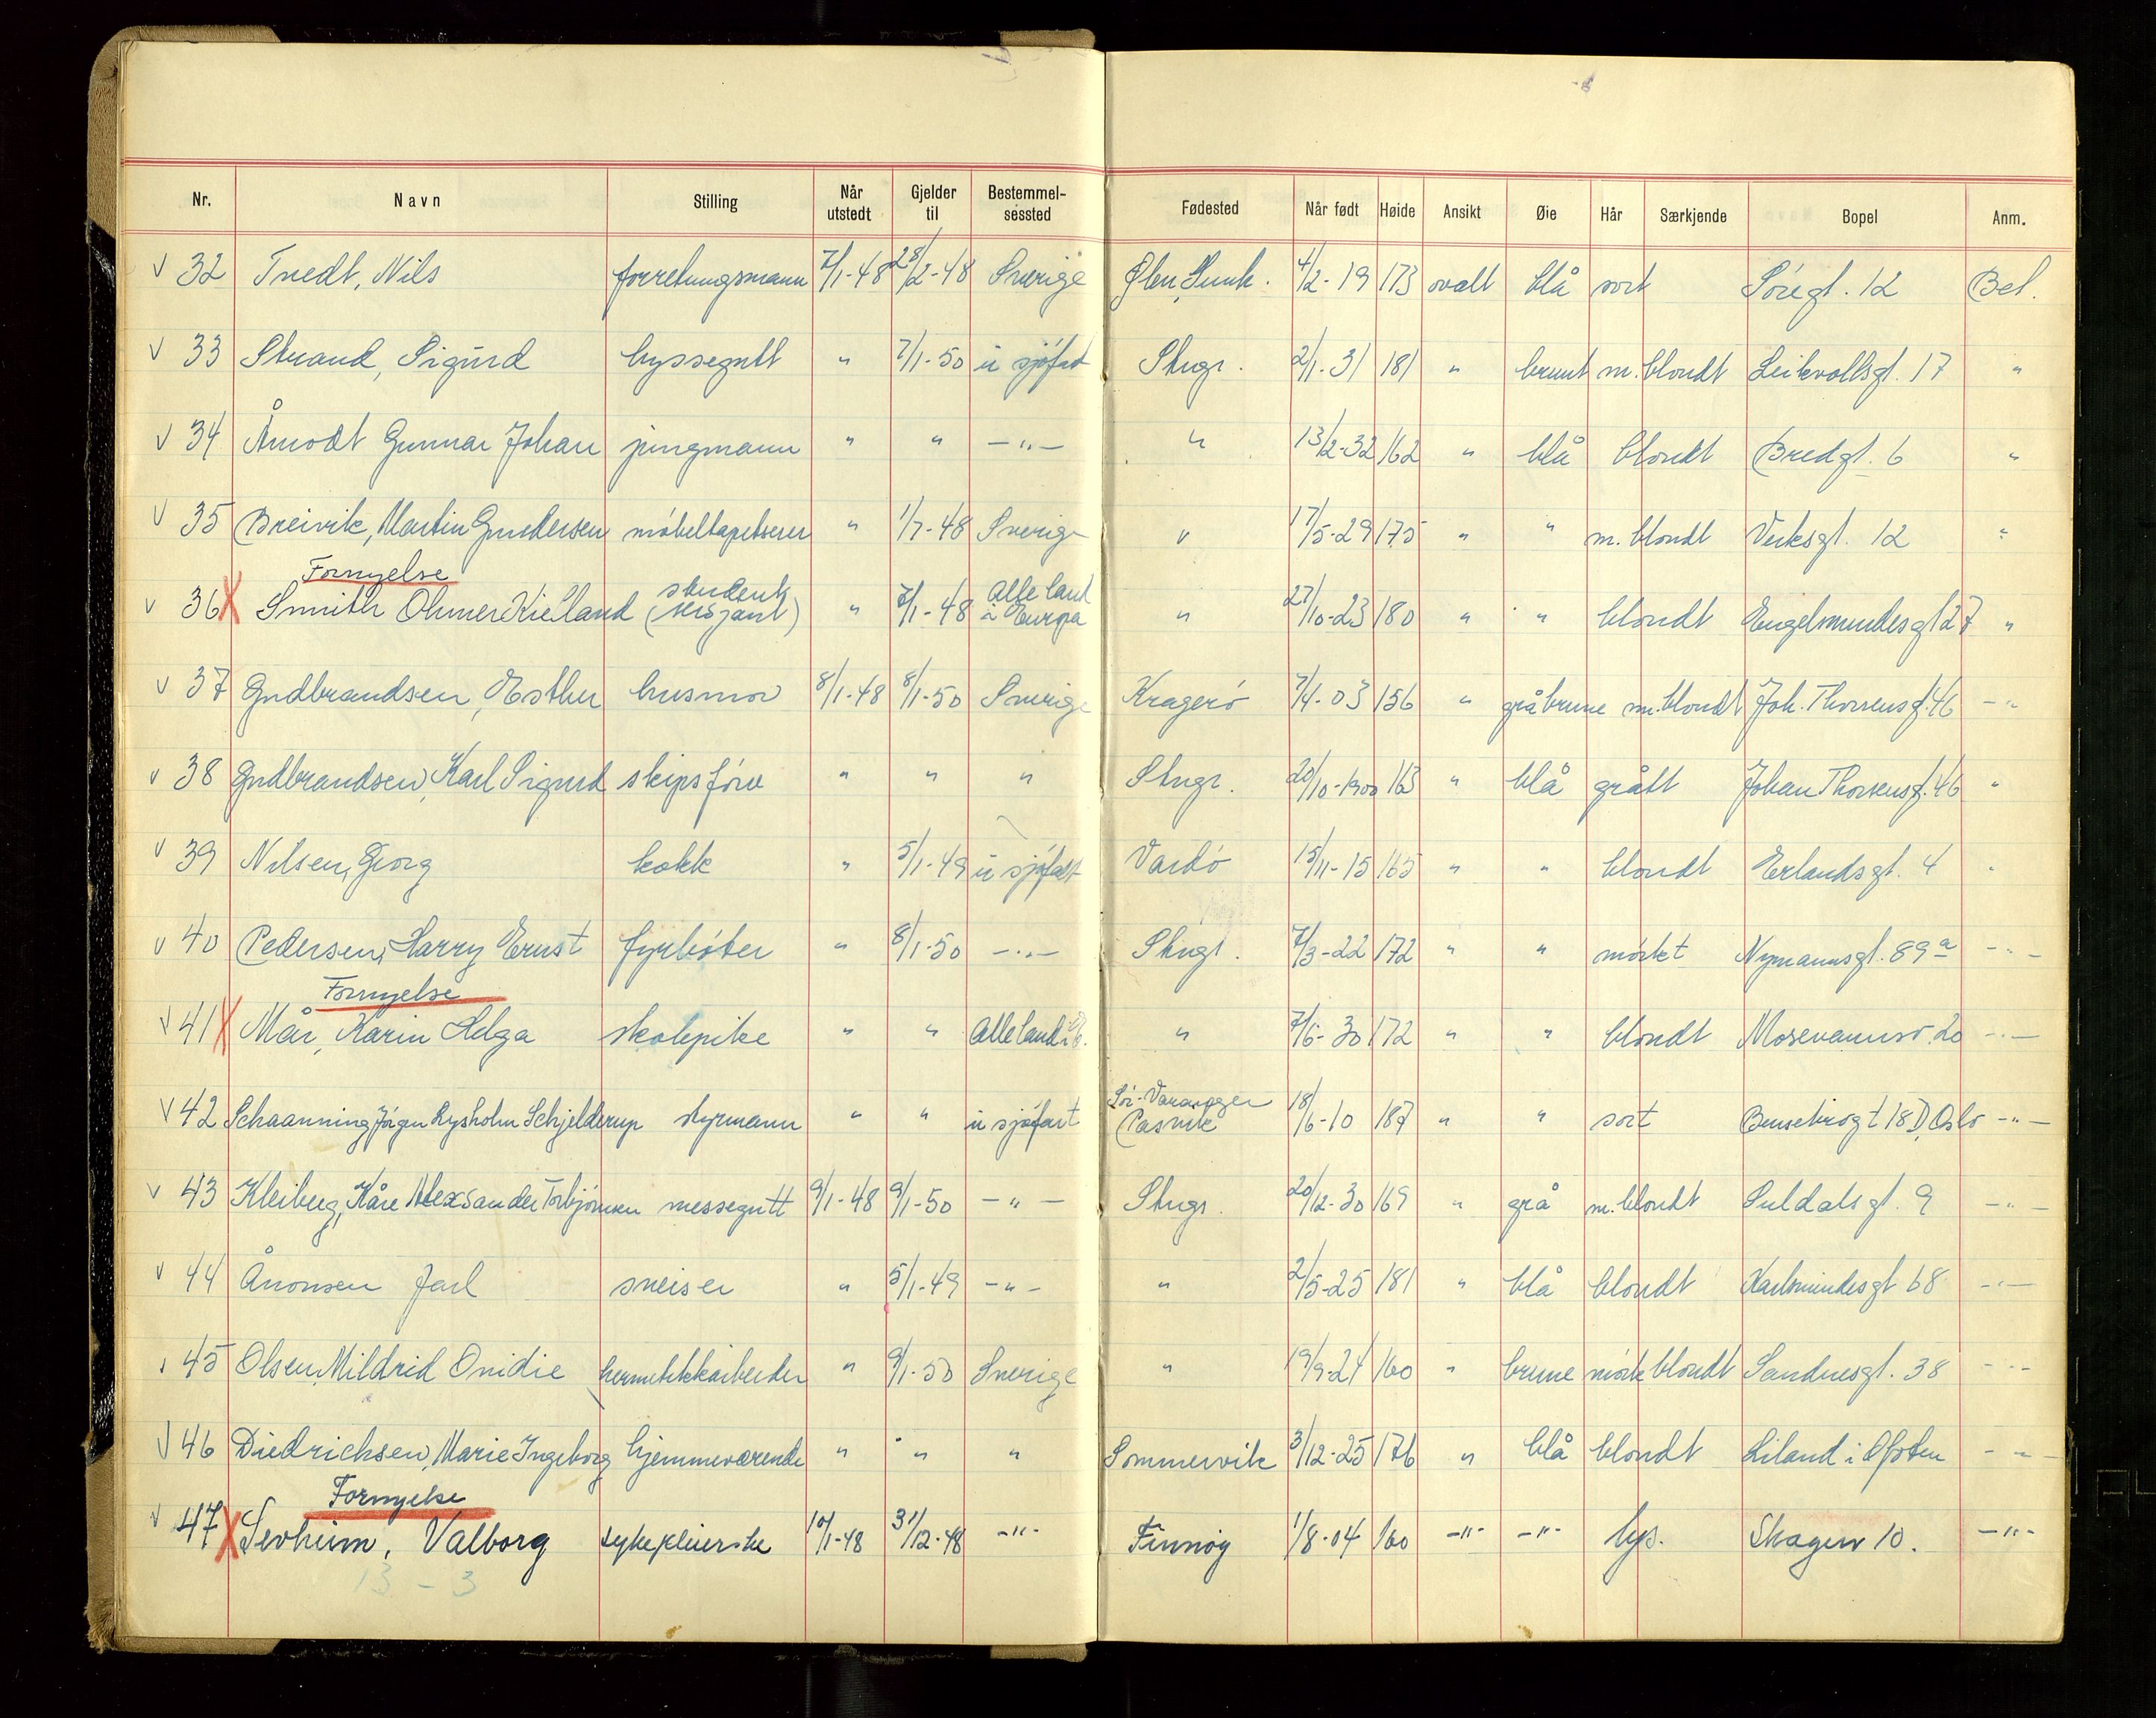 Nr. Navn Stilling Når utstedt Gjelder til Bestemmel-sessted Fødested Når født Høide Ansikt Øie Hår Særkjende Bopel Anm.
v 32 Tvedt, Nils forretningsmann 7/1-48 28/2-48 Sverige Ølen, Sunh. 4/2-19 173 ovalt blå sort Søregt. 12 Bet.
v 33 Strand, Sigurd byssegutt " 7/1-50 u sjøfart Stvgr. 2/1-31 181 " brunt m. blondt Leikvollsgt. 17 "
v 34 Åmodt Gunnar Johan jungmann " " -"- " 13/2-32 162 " blå blondt Bredgt. 6 "
v 35 Breivik, Martin Gundersen møbeltapetserer " 1/7-48 Sverige " 17/5-29 175 " " m. blondt Verksgt. 12 "
Fornyelse
v 36 X Smith Ohmer Kielland student (sersjant) " 7/1-48 Alle land i Europa " 27/10-23 180 " " blondt Engelsmindesgt 27 "
v 37 Gudbrandsen, Esther husmor 8/1-48 8/1-50 Sverige Kragerø 7/4-03 156 " gråbrune m. blondt Joh. Thorsensgt. 46 -"
v 38 Gudbrandsen, Karl Sigurd skipsfører " " " Stvgr. 20/10-1900 163 " blå grått Johan Thorsensgt. 46 "
v 39 Nilsen, Georg kokk " 5/1-49 u sjøfart Vardø 15/11-15 165 " " blondt Erlandsgt. 4 "
v 40 Pedersen, Harry Ernst fyrbøter " 8/1-50 -"- Stvgr. 7/3-22 172 " " mørket Nymannsgt. 89a -"-
Fornyelse
v 41 X Mår, Karin Helga skolepike " " Alle land i E. " 7/6-30 172 " " blondt Mosevannsv. 20 -"-
v 42 Schaanning, Jørgen Lysholm Schjelderup styrmann " " u sjøfart Sør-Varanger Pasvik 18/6-10 187 " " sort Bensebrogt 18 D, Oslo -"-
v 43 Kleiberg, Kåre Alexsander Torbjørnsen messegutt 9/1-48 9/1-50 -"- Stvgr. 20/12-30 169 " grå m. blondt Suldalsgt. 9 -"-
v 44 Åronsen Jarl sveiser " 5/1-49 -"- " 2/5-25 181 " blå blondt Karlsmindesgt 68 -"-
v 45 Olsen, Mildrid Ovidie hermetikkarbeider " 9/1-50 Sverige " 19/9-24 160 " brune mørk blondt Sandnesgt. 38 -"-
v 46 Diedrichsen, Marie Ingeborg hjemmeværende " " " Sommervik 3/12-25 176 " blå blondt Liland i Ofoten -"-
Fornyelse
v 47 X Sevheim, Valborg sykepleierske 10/1-48 31/12-48 -"- Finnøy 1/8-04 160 -"- -"- lys. Skagen 10. -"-
13 - 3